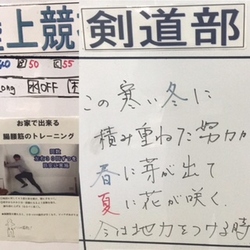 陸上競
剣道部
50
55
ong
OFF
お家で出来る
腸腰筋のトレーニング
この寒い冬に
積み重ねた努力が
春に芽が出て
夏に花が咲く.
今は地力をつける時